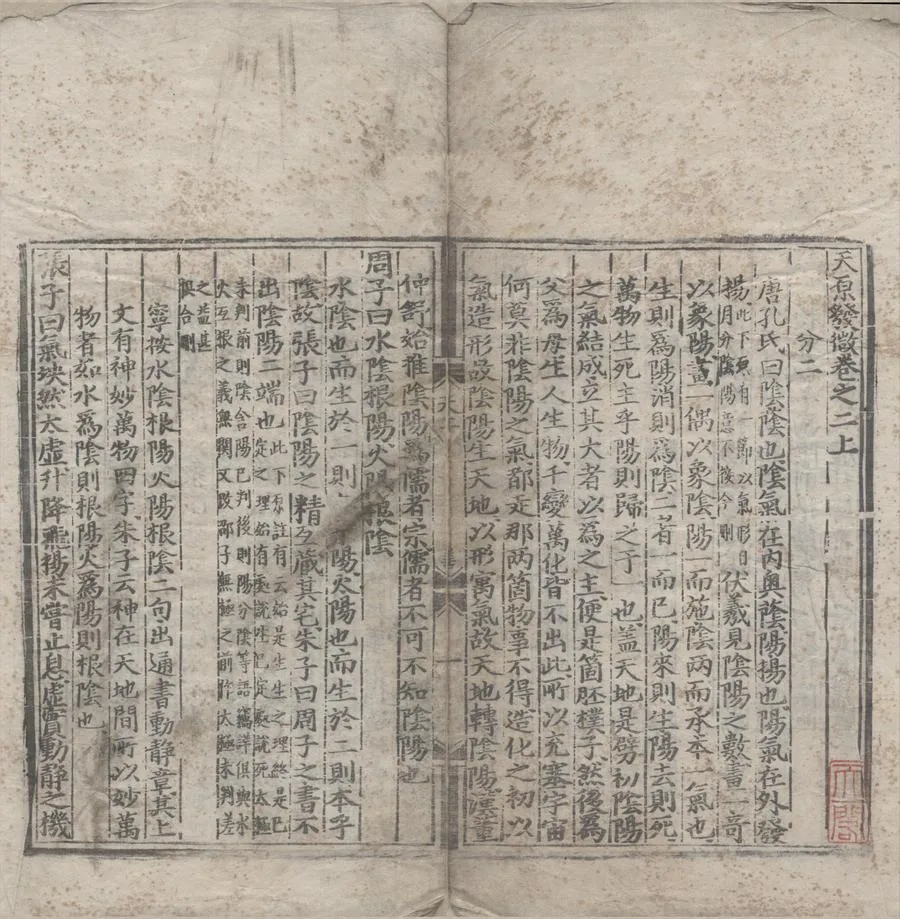 天原發微卷之二上
分二
唐孔氏曰陰蔭也陰氣在內奧蔭陽揚也陽氣在外發
揚此下原有一節以氣形日月分陰陽意不後今刪伏羲見陰陽之數畫一奇
以象陽畫一偶以象陰陽一而施陰兩而承本一氣也
生則爲陽消則爲陰二者一而已陽來則生陽去則死
萬物生死主乎陽則歸之于一也蓋天地是劈初陰陽
之氣結成立其大者以爲之主便是箇胚樸子然後爲
父爲母生人生物千變萬化皆不出此所以充塞宇宙
何莫非陰陽之氣都是那兩箇物事不得造化之初以
氣造形故陰陽生天地以形寓氣故天地轉陰陽漢董
仲舒始推陰陽爲儒者宗儒者不可不知陰陽也
周子曰水陰根陽火陽根陰
水陰也而生於一則 陽火陽也而生於二則本乎
陰故張子曰陰陽之精互藏其宅朱子曰周子之書不
出陰陽二端也此下原註有云始是生生之理終是已定之理始有處說生已定處說死太極
未判前則陰含陽已判後則陽分陰等語竊詳俱與水火互根之義無關又改邵子無極之前作太極未判差
之益甚俱合刪
寧按水陰根陽火陽根陰二句出通書動靜章其上
文有神妙萬物四字朱子云神在天地間所以妙萬
物者如水爲陰則根陽火爲陽則根陰也
張子曰氣坱然太虛升降飛揚未嘗止息虛實動靜之機